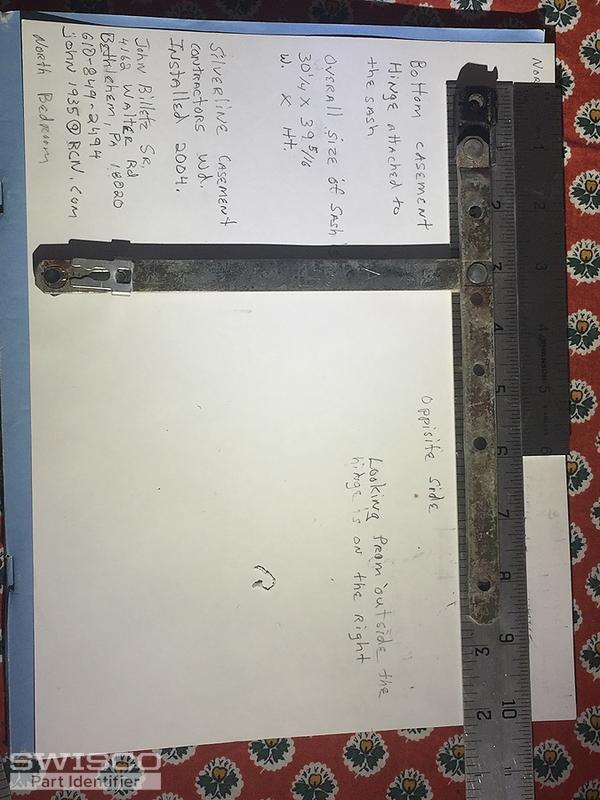 Bottom casement
Hinge attached to
the sash
Overall size of sash
30 1/4 x 39 5/16
W. x Ht.
Silverline casement
contractors Wd.
Installed 2004.
John Billetz Sr.
4168 Walter Rd
Bethlehem, PA 18020
610-849-2494
John1935@RCN.com
North Bedroom
Nor
Oppisite side
Looking from outside the
hinge is on the Right
1 2 3 4 5 6
1 2 3 4 5 6 7 8 9 10
3 2
SWISCO
Part Identifier